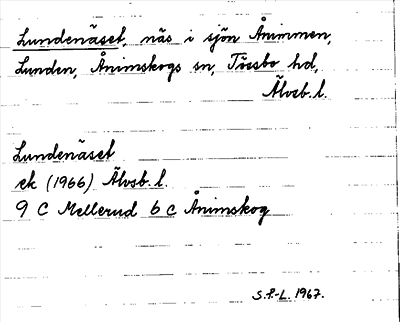 Lundenäset, näs i sjön Ånimmen,
Lunden, Ånimskogs sn, Tössbo hd,
Älvsb. l.
Lundenäset
ek (1966) Älvsb. l.
9 C Mellerud 6 c Ånimskog
S.F.-L. 1967.